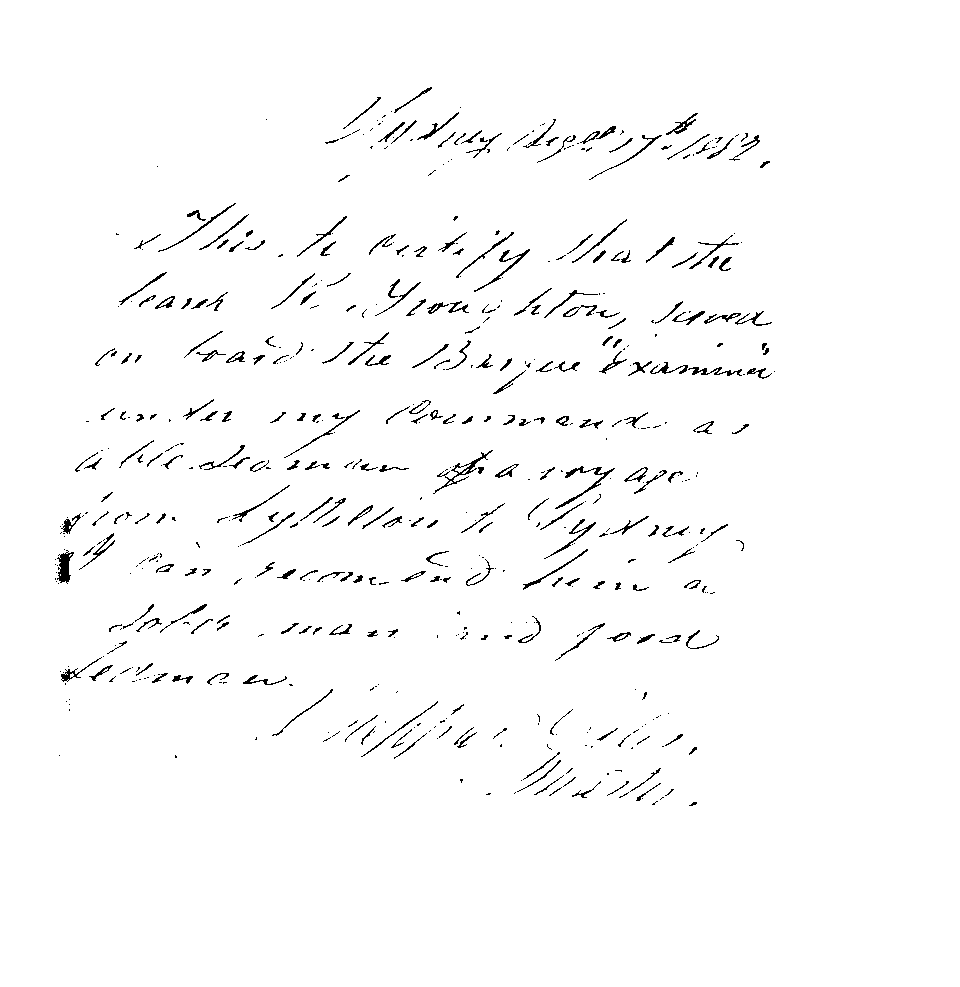 Sydney Sept 17th 1882.
This to certify that the
bearer R. Troughton, served
on board the Barque "Examiner"
under my Command as
able seaman on a voyage
from Lyttelton to Sydney
I can recomend him a
sober man and good
Seaman.
Master.